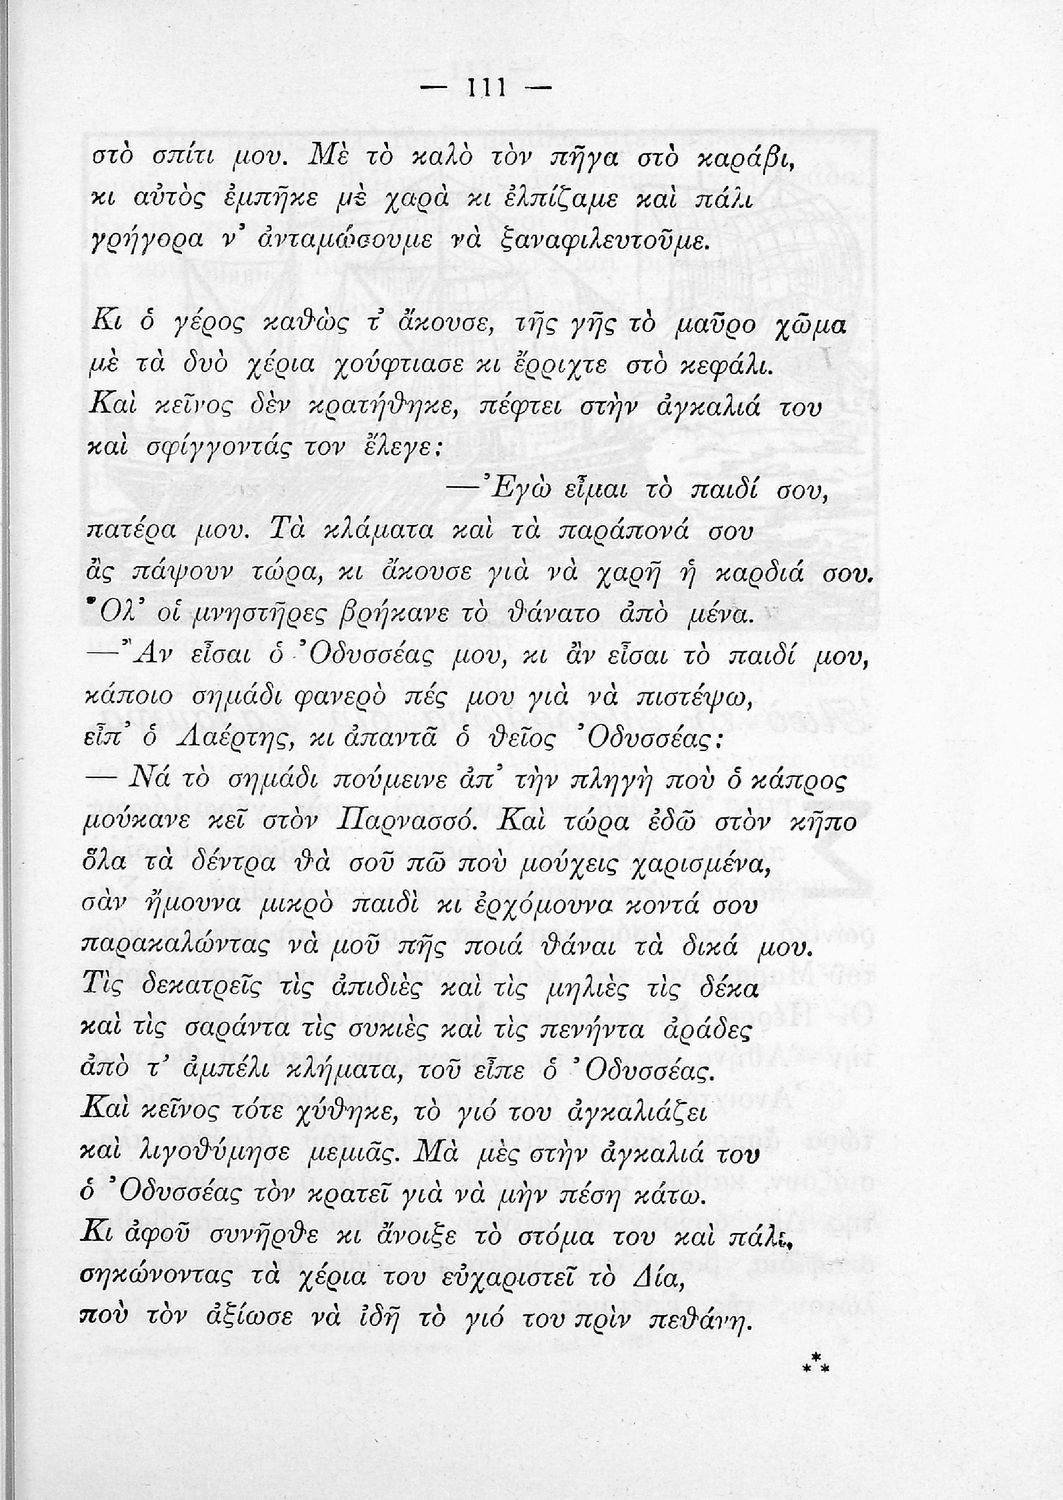 — 111 —
στὸ σπίτι μου. Μὲ τὸ καλὸ τὸν πῆγα στὸ καράβι,
κι αὐτὸς ἐμπῆκε μὲ χαρὰ κι ἐλπίζαμε καὶ πάλι
γρήγορα ν᾿ ἀνταμώσουμε νὰ ξαναφιλευτοῦμε.
Κι ὁ γέρος καθὼς τ᾿ ἄκουσε, τῆς γῆς τὸ μαῦρο χῶμα
μὲ τὰ δυὸ χέρια χούφτιασε κι ἔρριχτε στὸ κεφάλι.
Καὶ κεῖνος δὲν κρατήθηκε, πέφτει στὴν ἀγκαλιά του
καὶ σφίγγοντάς τον ἔλεγε:
—Ἐγὼ εἶμαι τὸ παιδί σου,
πατέρα μου. Τὰ κλάματα καὶ τὰ παράπονά σου
ἂς πάψουν τώρα, κι ἄκουσε γιὰ νὰ χαρῆ ἡ καρδιά σου.
Ὅλ᾿ οἱ μνηστῆρες βρήκανε τὸ θάνατο ἀπὸ μένα.
—Ἂν εἶσαι ὁ Ὀδυσσέας μου, κι ἂν εἶσαι τὸ παιδί μου,
κάποιο σημάδι φανερὸ πές μου γιὰ νὰ πιστέψω,
εἶπ᾿ ὁ Λαέρτης, κι ἀπαντᾶ ὁ θεῖος Ὀδυσσέας:
— Νά τὸ σημάδι πούμεινε ἀπ᾿ τὴν πληγὴ ποὺ ὁ κάπρος
μούκανε κεῖ στὸν Παρνασσό. Καὶ τώρα ἐδῶ στὸν κῆπο
ὅλα τὰ δέντρα θὰ σοῦ πῶ ποὺ μούχεις χαρισμένα,
σὰν ἤμουνα μικρὸ παιδὶ κι ἐρχόμουνα κοντά σου
παρακαλώντας νὰ μοῦ πῆς ποιά θάναι τὰ δικά μου.
Τὶς δεκατρεῖς τὶς ἀπιδιὲς καὶ τὶς μηλιὲς τὶς δέκα
καὶ τὶς σαράντα τὶς συκιὲς καὶ τὶς πενήντα ἀράδες
ἀπὸ τ᾿ ἀμπέλι κλήματα, τοῦ εἶπε ὁ Ὀδυσσέας.
Καὶ κεῖνος τότε χύθηκε, τὸ γιό του ἀγκαλιάζει
καὶ λιγοθύμησε μεμιᾶς. Μὰ μὲς στὴν ἀγκαλιά του
ὁ Ὀδυσσέας τὸν κρατεῖ γιὰ νὰ μὴν πέση κάτω.
Κι ἀφοῦ συνῆρθε κι ἄνοιξε τὸ στόμα του καὶ πάλι,
σηκώνοντας τὰ χέρια του εὐχαριστεῖ τὸ Δία,
ποὺ τὸν ἀξίωσε νὰ ἰδῆ τὸ γιό του πρὶν πεθάνη.
⁂